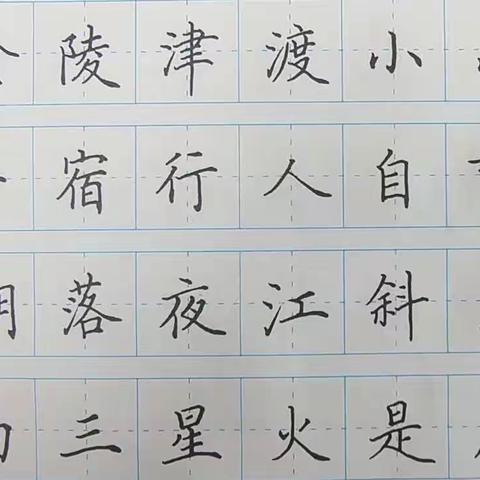 陵津渡小
宿行人自
落夜江斜
三星火是